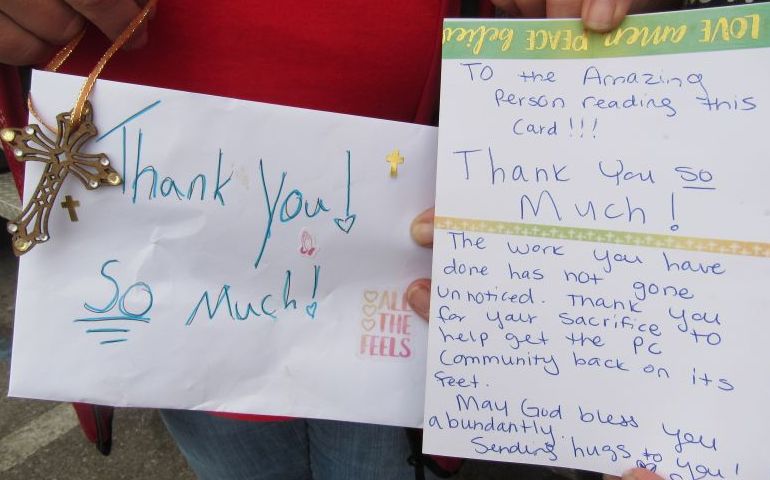 Thank
you!
So Much!
ALL
THE
FEELS
LOVE amen PEACE believe
To the Amazing
Person reading this
Card!!!
Thank you so
Much!
The work you have
done has not gone
unnoticed. Thank you
for your sacrifice to
help get the PC
Community back on its
feet.
May God bless you
abundantly.
Sending hugs to you!